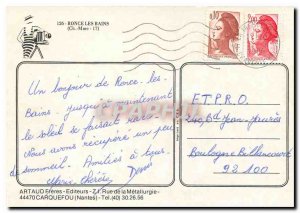 126 - RONCE LES BAINS
(Ch.-Mme - 17)
Un bonjour de Ronce-les-
Bains. Jusqu'à maintenant
le soleil se faisait rare.
Nous avons récupéré un peu
de sommeil. Amitiés à tous.
Marie-Thérèse Denis
2,00
E.T.P.R.O.
240, Bd Jean-Jaurès
Boulogne Billancourt
92 100
ARTAUD Frères - Editeurs - Z.I. Rue de la Métallurgie -
44470 CARQUEFOU (Nantes) - Tél. (40) 30.26.56